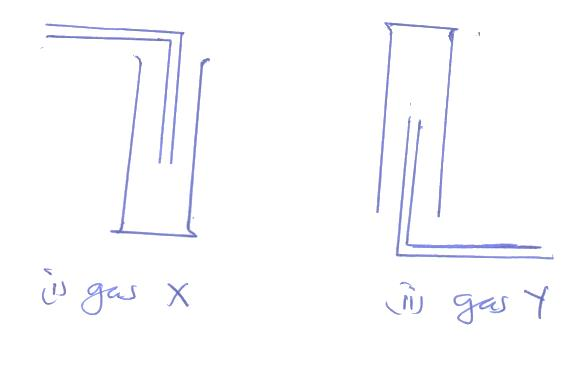 (i) gas X
(ii) gas Y